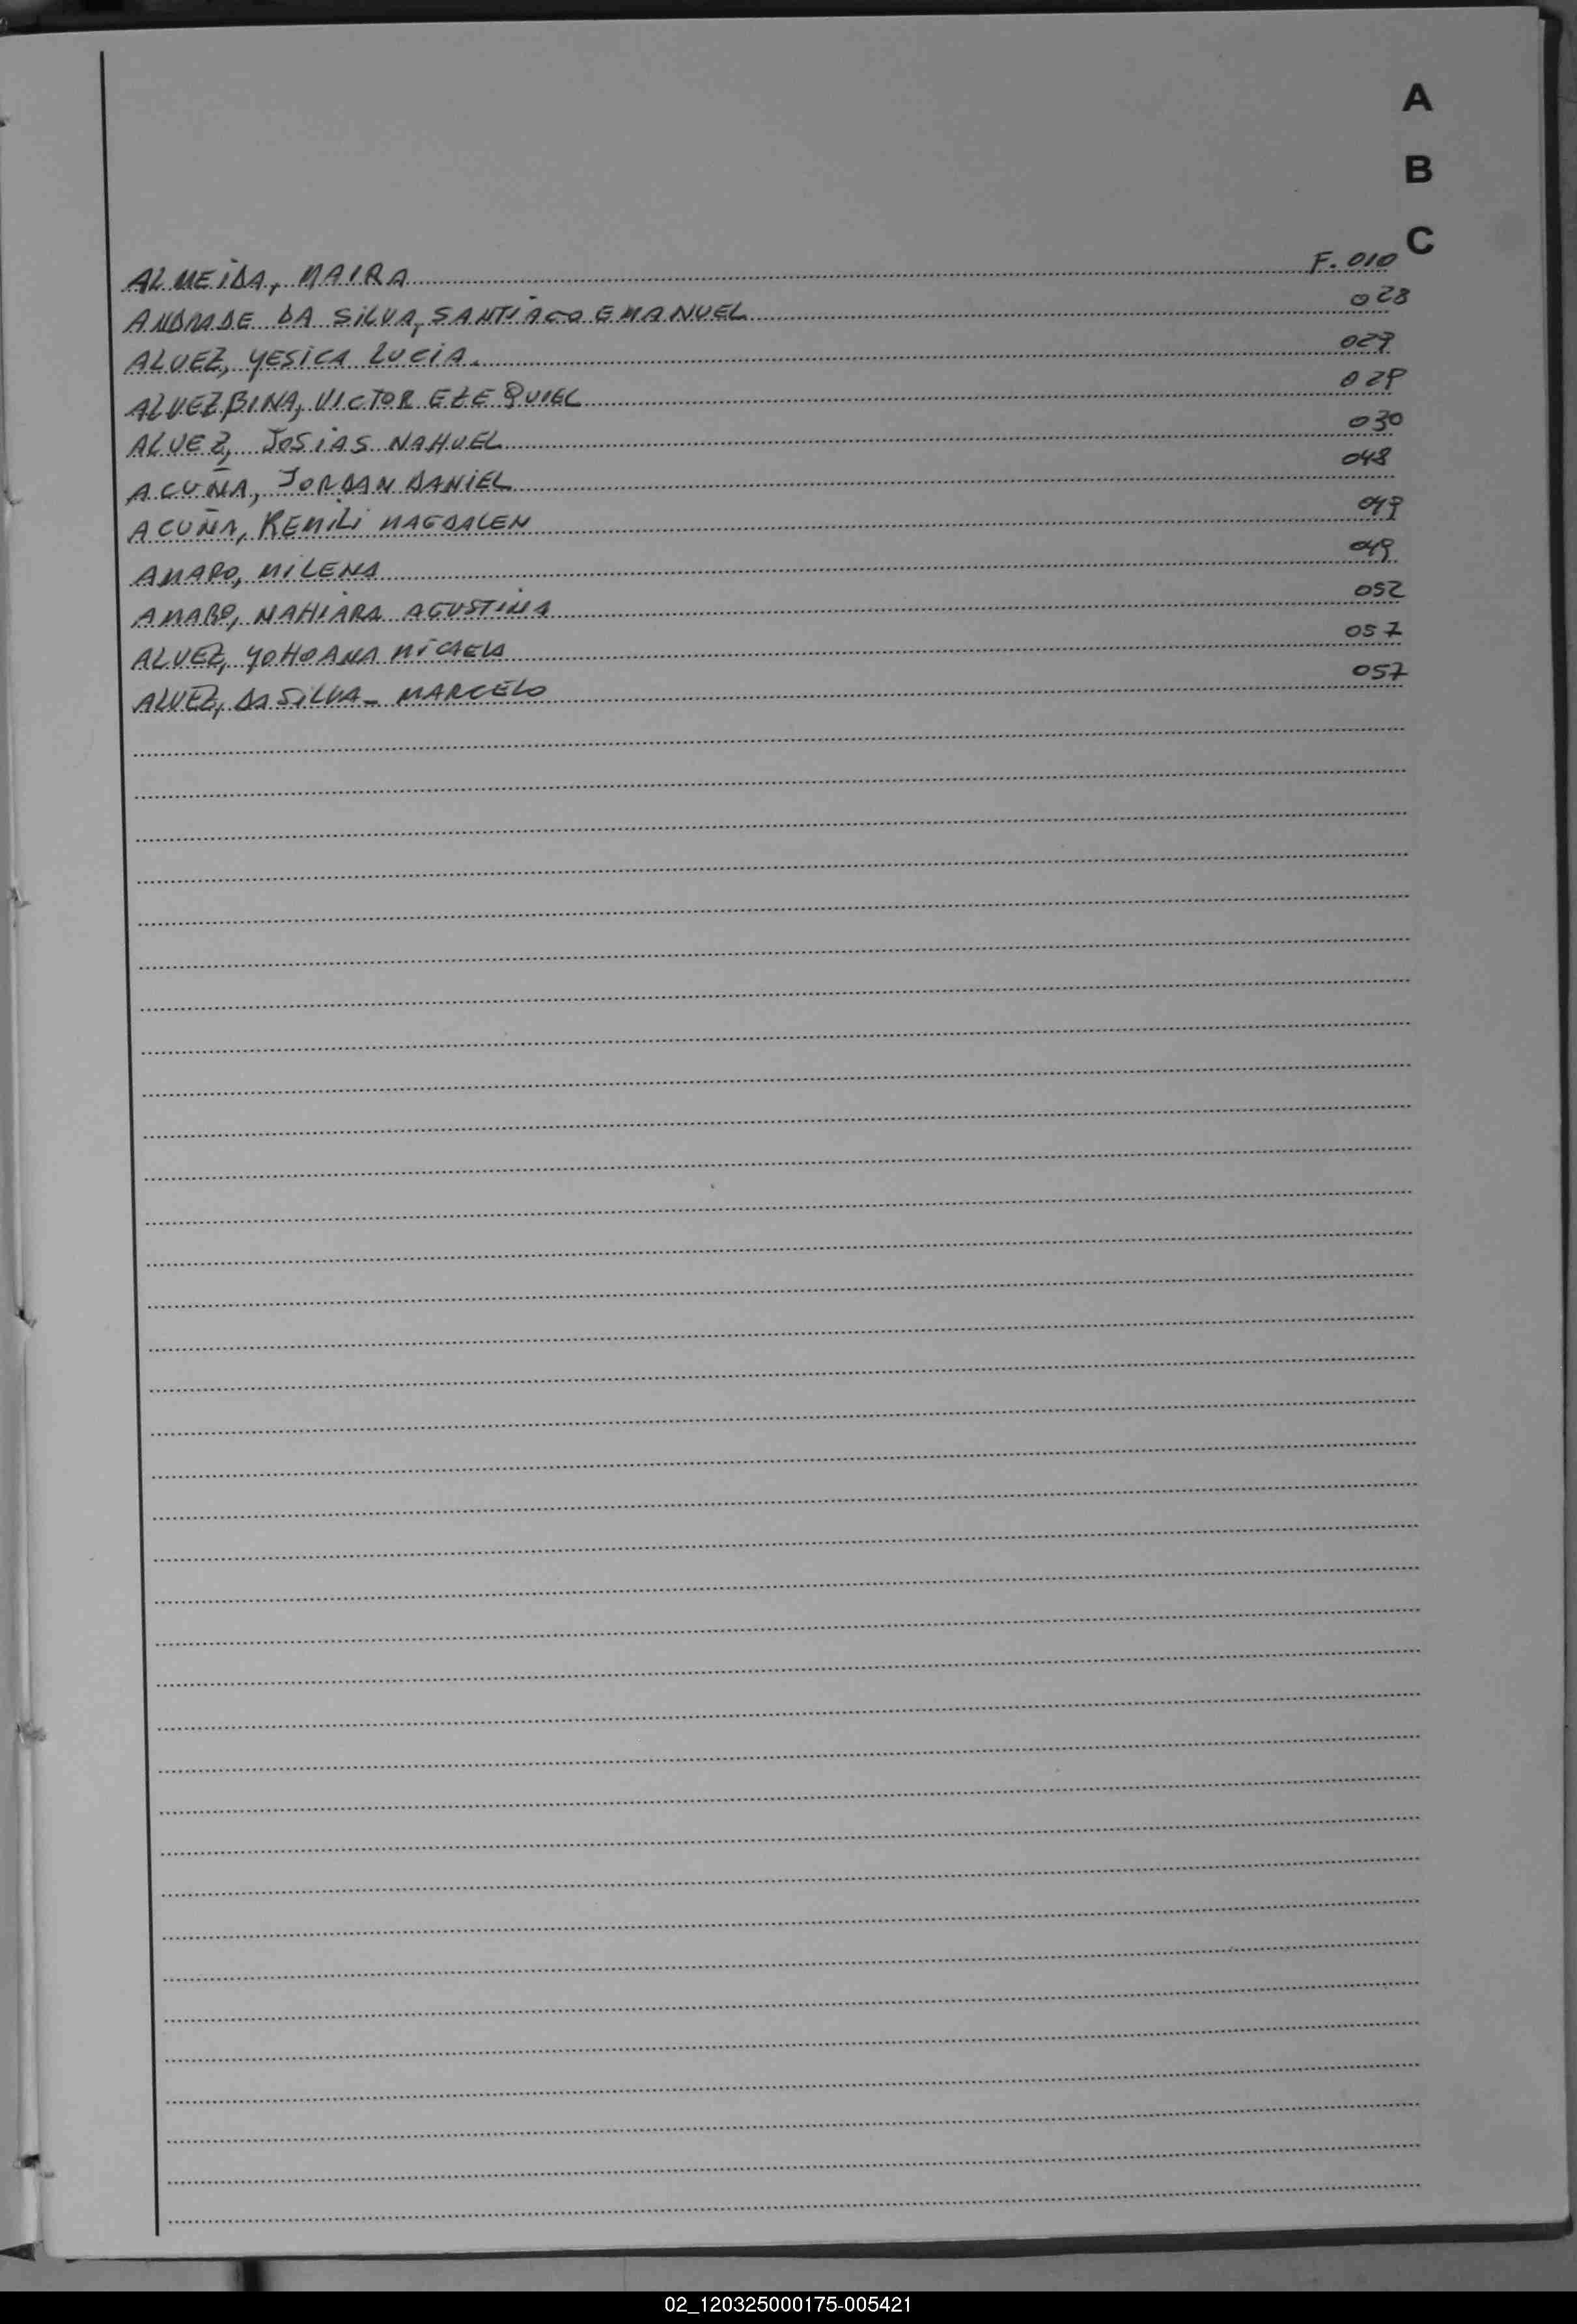 A
B
C
ALMEIDA, MAIRA F. 010
ANDRADE DA SILVA, SANTIAGO EMANUEL 028
ALVEZ, YESICA LUCIA. 029
ALVEZ BINA, VICTOR EZEQUIEL 029
ALVEZ, JOSIAS NAHUEL 030
ACUÑA, JORDAN DANIEL 048
ACUÑA, REMILI MAGDALEN 049
AMARO, MILENA 049
AMARO, NAHIARA AGUSTINA 052
ALVEZ, YOHOANA MICAELA 057
ALVEZ, DA SILVA - MARCELO 057
02_120325000175-005421